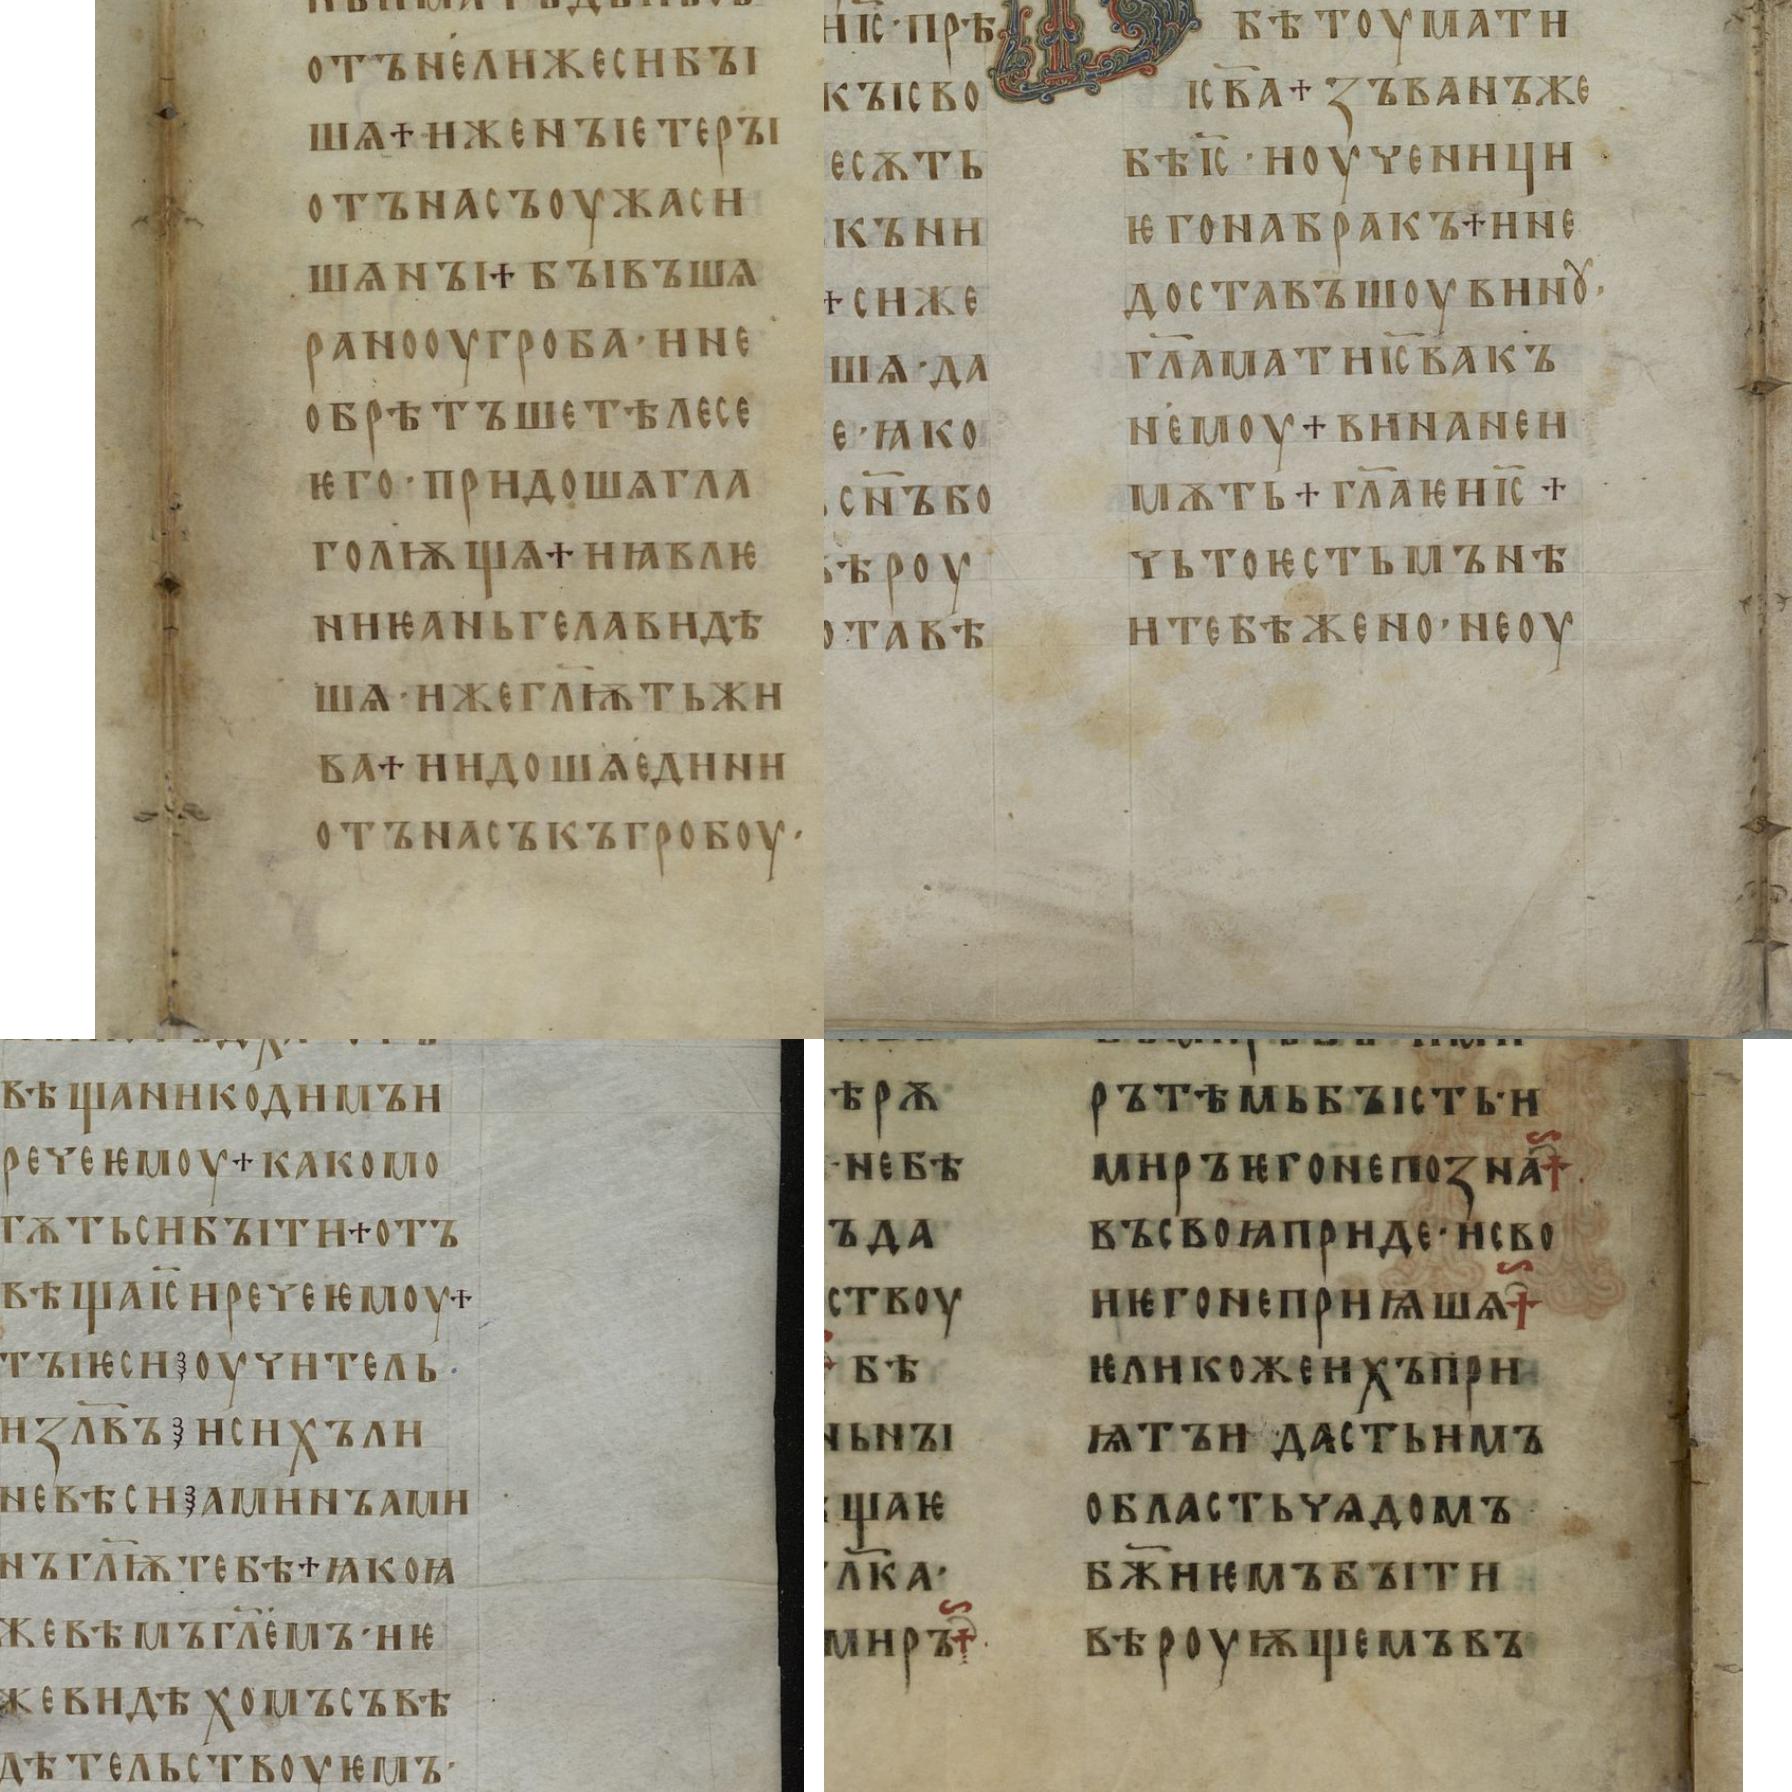 отънелнжесибꙑ
шѧ+иженꙑѥтерꙑ
отънасъоужаси
шѧнꙑ+бꙑвъшѧ
ранооугроба·ине
обрѣтъшетѣлесе
ѥго·придошѧгла
голѭщѧ+иꙗвлѥ
ниѥаньгелавидѣ
шѧ·ижегл҃ѭтьжи
ва+иидошѧедини
отънасъкъгробоу·
н҃іс·прѣ
кꙑсво
есѫть
къни
+сиже
шѧ·да
е·ꙗко
сн҃ъбо
вѣроу
отавѣ
бѣтоумати
іс҃ва+зъванъже
бѣі҃с·иоученици
ѥгонабракъ+ине
доставъшоувинꙋ·
гл҃аматиі҃свакъ
немоу+винанеи
мѫть+гл҃аѥиі҃с+
чьтоѥстьмънѣ
итебѣжено·неоу
вѣщаникодимъи
речеѥмоу+какомо
гѫтьсибꙑти+отъ
вѣщаі҃сиречеѥмоу+
тꙑѥси⁖оучитель·
изл҃въ⁖исихъли
невѣси⁖аминъами
нъгл҃ѭтебѣ+ꙗкоꙗ
жевѣмъгл҃емъ·иѥ
жевидѣхомъсъвѣ
дѣтельствоуѥмъ·
ѣрѫ
·небѣ
ъда
ствоу
бѣ
ньнꙑ
щаѥ
л҃ка·
миръ+
рътѣмьбꙑсть·и
миръѥгонепозна+
въсвоꙗприде·исво
иѥгонеприꙗшѧ+
ѥликожеихъпри
ѩтъи дастьимъ
областьчѧдомъ
бж҃иѥмъбꙑти
вѣроуѭщемъвъ